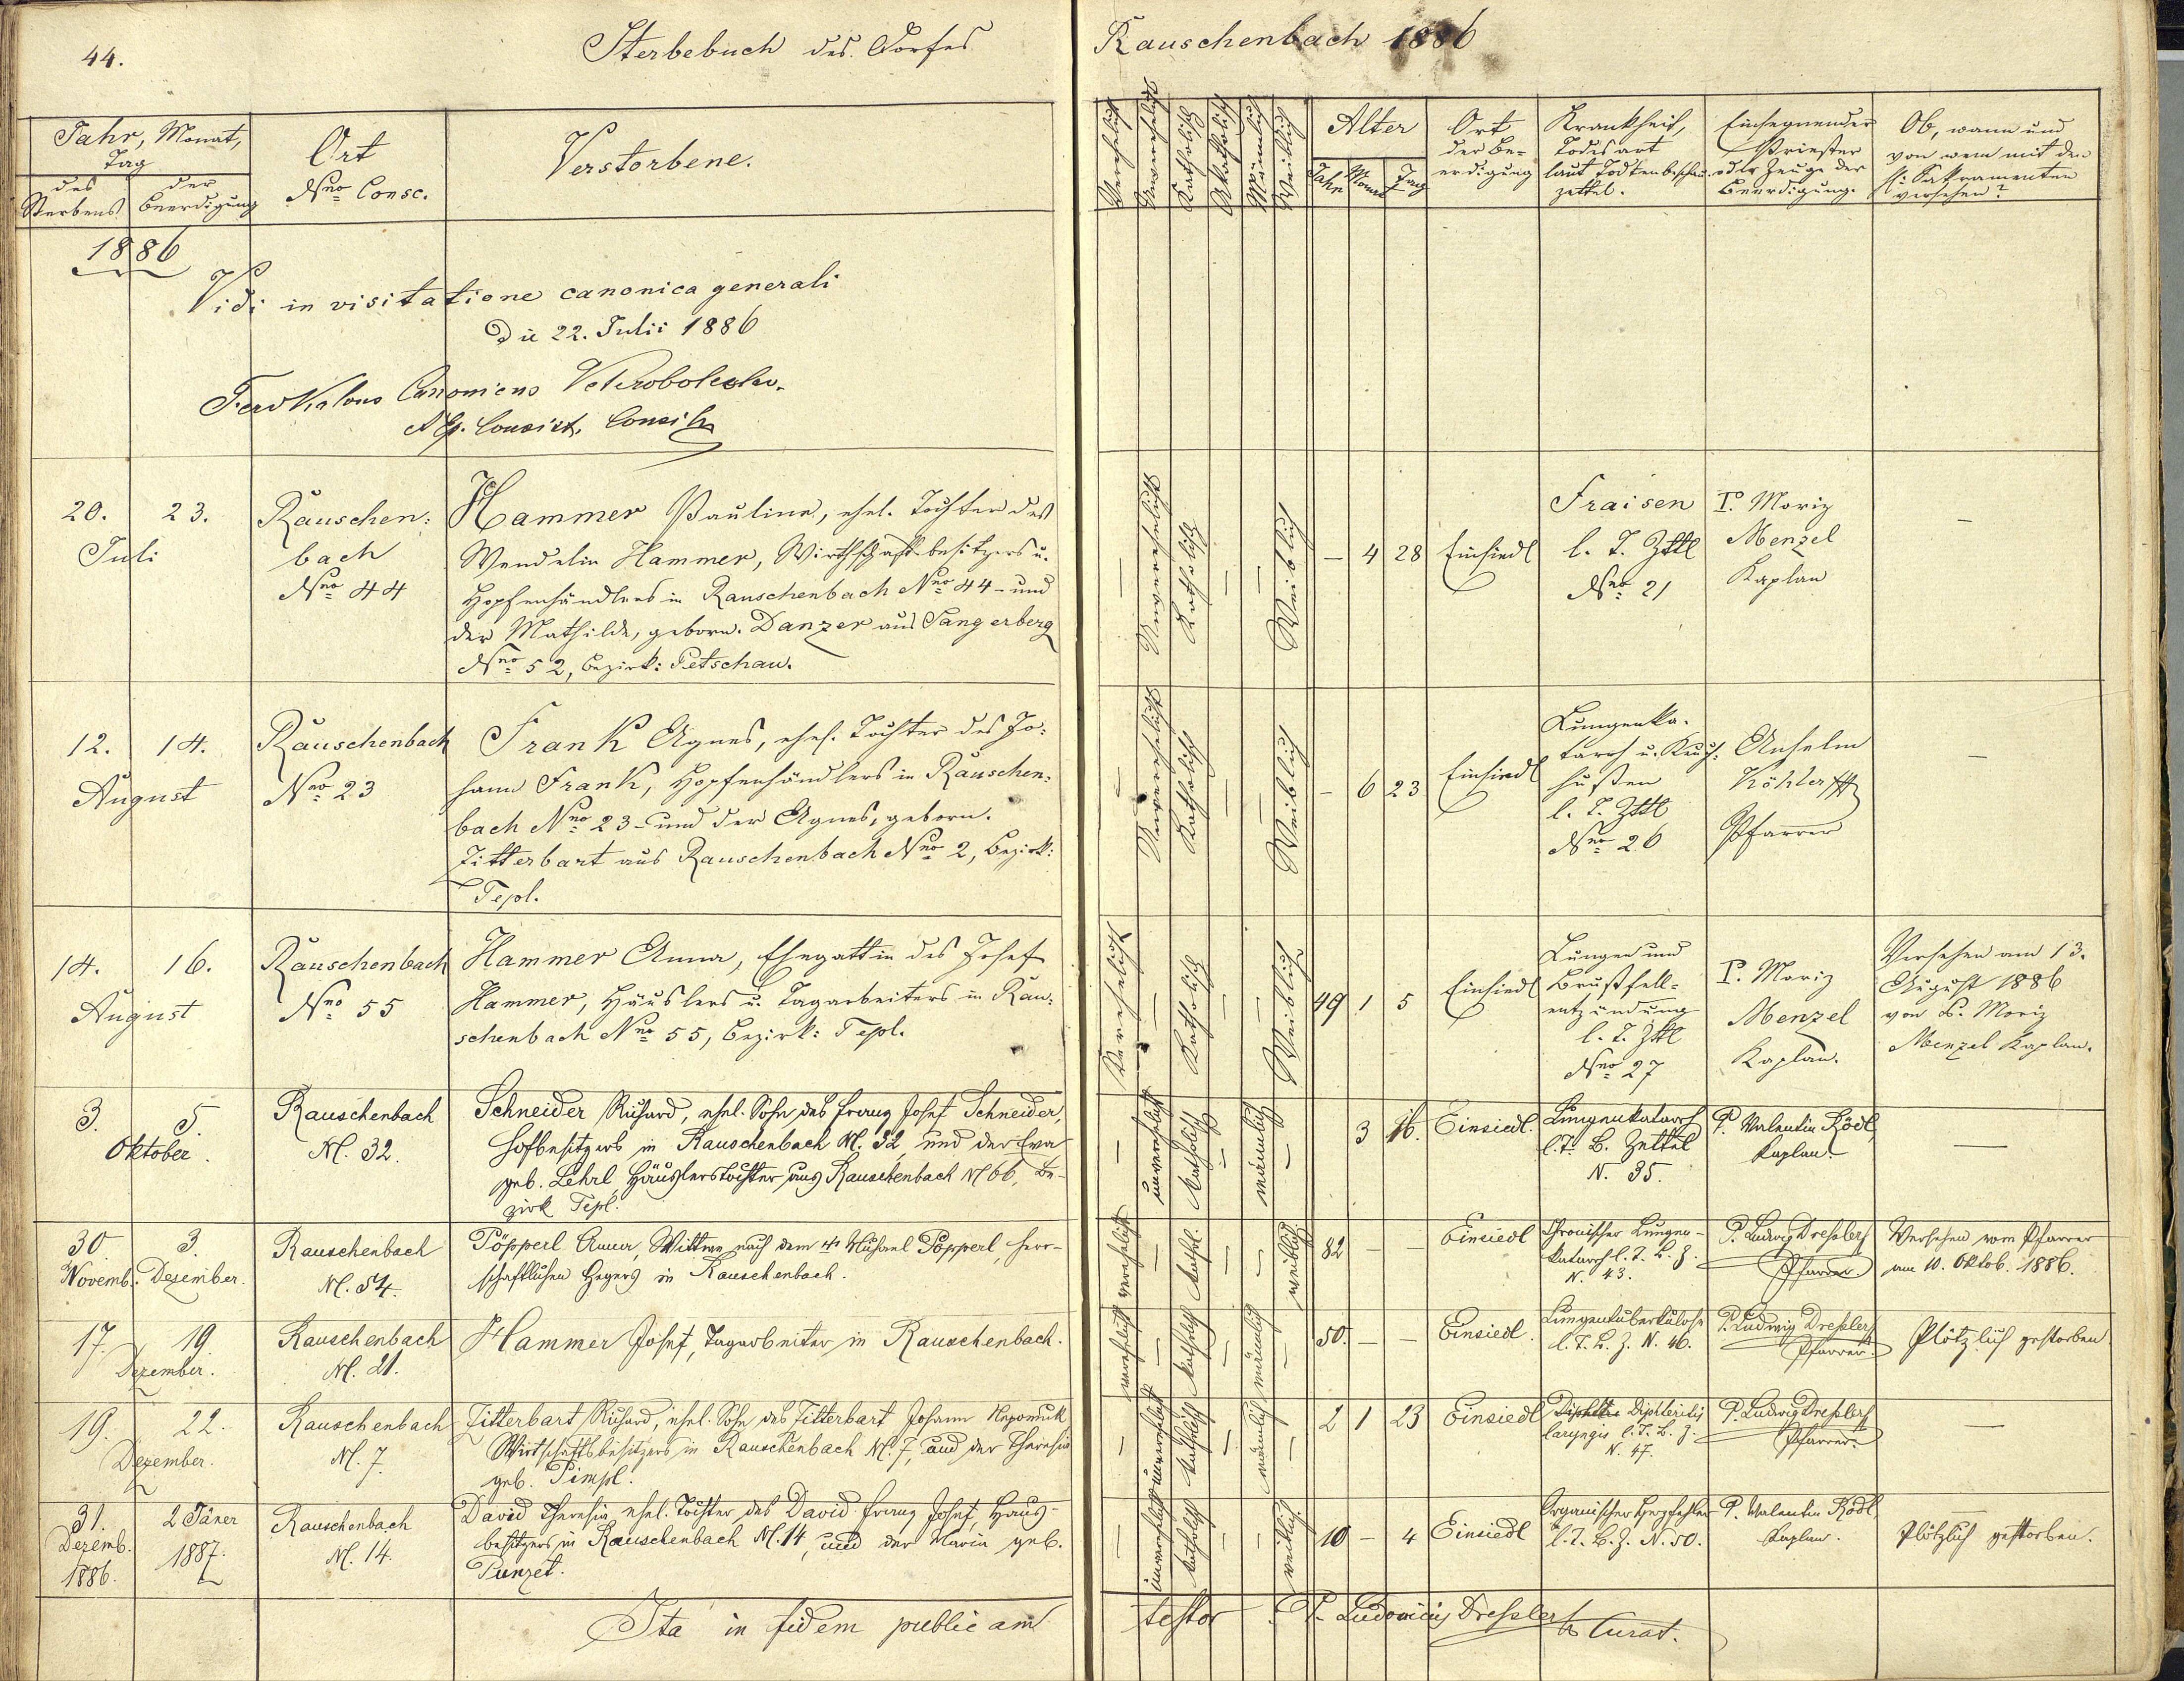 44.
Sterbebuch des Dorfes
Rauschenbach 1886
Jahr, Monat,
Tag
des
Sterbens
der
Beerdigung
Ort
Nro Consc.
Verstorbene.
Verehelicht
Unverehelicht
Katholisch
Akatholisch
Männlich
Weiblich
Alter
Jahr
Monat
Tag
Ort
der Be-
erdigung
Krankheit,
Todesart
laut Todtenbeschau-
zettel.
Einsegnender
Priester
oder Zeuge der
Beerdigung.
Ob, wann und
von wem mit den
h: Sakramenten
versehen?
1886
Vidi in visitatione canonica generali
Die 22. Julii 1886
Canonicus
Consist. Consil.
20. 23.
Juli
Rauschen:
bach
Nro 44
Hammer Pauline, ehel. Tochter des
Wendelin Hammer, Wirthschaft-besitzers u.
Hopfenhändlers in Rauschenbach Nro 44 - und
der Mathilde, geborn. Danzer aus Sangerberg
Nro 52, Bezirk: Petschau.
—
Unverehelicht
Katholisch
—
—
Weiblich
— 4 28
Einsiedl
Fraisen
l. T. Zttl
Nro 21
P. Moriz
Menzel
Kaplan
—
12. 14.
August
Rauschenbach
Nro 23
Frank Agnes, ehel. Tochter des Jo:
hann Frank, Hopfenhändlers in Rauschen:
bach Nro 23 - und der Agnes, geborn.
Zitterbart aus Rauschenbach Nro 2, Bezirk:
Tepl.
—
Unverehelicht
Katholisch
—
—
Weiblich
— 6 23
Einsiedl
Lungenka-
tarrh u. Keuch:
husten
l. T. Zttl
Nro 26
Anselm
Köhler
Pfarrer
—
14. 16.
August
Rauschenbach
Nro 55
Hammer Anna, Ehegattin des Josef
Hammer, Häuslers u. Tagarbeiters in Rau:
schenbach Nro 55, Bezirk: Tepl.
Verehelicht
—
Katholisch
—
—
Weiblich
49 1 5
Einsiedl
Lungen und
Brustfell-
entzündung
l. T. Zttl
Nro 27
P. Moriz
Menzel
Kaplan.
Versehen am 13.
August 1886
von P. Moriz
Menzel Kaplan.
3. 5.
Oktober.
Rauschenbach
N. 32.
Schneider Richard, ehel. Sohn des Franz Josef Schneider,
Hofbesitzers in Rauschenbach N. 32, und der Eva
geb. Lehrl, Häuslerstochter aus Rauschenbach N 66, Be-
zirk Tepl.
—
unverehelicht
katholisch
—
männlich
—
3 16.
Einsiedl.
Lungenkatarrh
l. T. B. Zettel
N. 35.
P. Valentin Ködl,
Kaplan.
—
30. 3.
Novemb. Dezember.
Rauschenbach
N. 54.
Pöpperl Anna, Wittwe nach dem + Michael Pöpperl, herr-
schaftlichen Hegers in Rauschenbach.
verehelicht
—
kathol.
—
—
weiblich
82
Einsiedl
Chronischer Lungen-
katarrh l. T. B. Z.
N. 43.
P. Ludwig Dreßler
Pfarrer
Versehen vom Pfarrer
am 10. Oktob. 1886.
17. 19.
Dezember.
Rauschenbach
N. 21.
Hammer Josef, Tagarbeiter in Rauschenbach.
verehelicht
—
katholisch
—
männlich
—
50. — —
Einsiedl.
Lungentuberkulose
l. T. B. Z. N. 46.
P. Ludwig Dreßler
Pfarrer
Plötzlich gestorben
19. 22.
Dezember.
Rauschenbach
N. 7.
Zitterbart Richard, ehel. Sohn des Zitterbart Johann Nepomuk
Wirtschaftsbesitzers in Rauschenbach N. 7, und der Theresia
geb. Pimpl.
—
unverehelicht
katholisch
—
männlich
—
2 1 23
Einsiedl
Diphteritis
laryngis l. T. B. Z.
N. 47.
P. Ludwig Dreßler
Pfarrer.
—
31. 2 Jäner
Dezemb. 1887.
1886.
Rauschenbach
N. 14.
David Theresia, ehel. Tochter des David Franz Josef, Haus-
besitzers in Rauschenbach N. 14, und der Maria geb.
Punzet.
—
unverehelicht
katholisch
—
—
weiblich
10 — 4
Einsiedl
Organischer Herzfehler
l. T. B. Z. N. 50.
P. Valentin Ködl,
Kaplan.
Plötzlich gestorben.
Ita in fidem publicam
testor P. Ludovicus Dreßler
Curat.